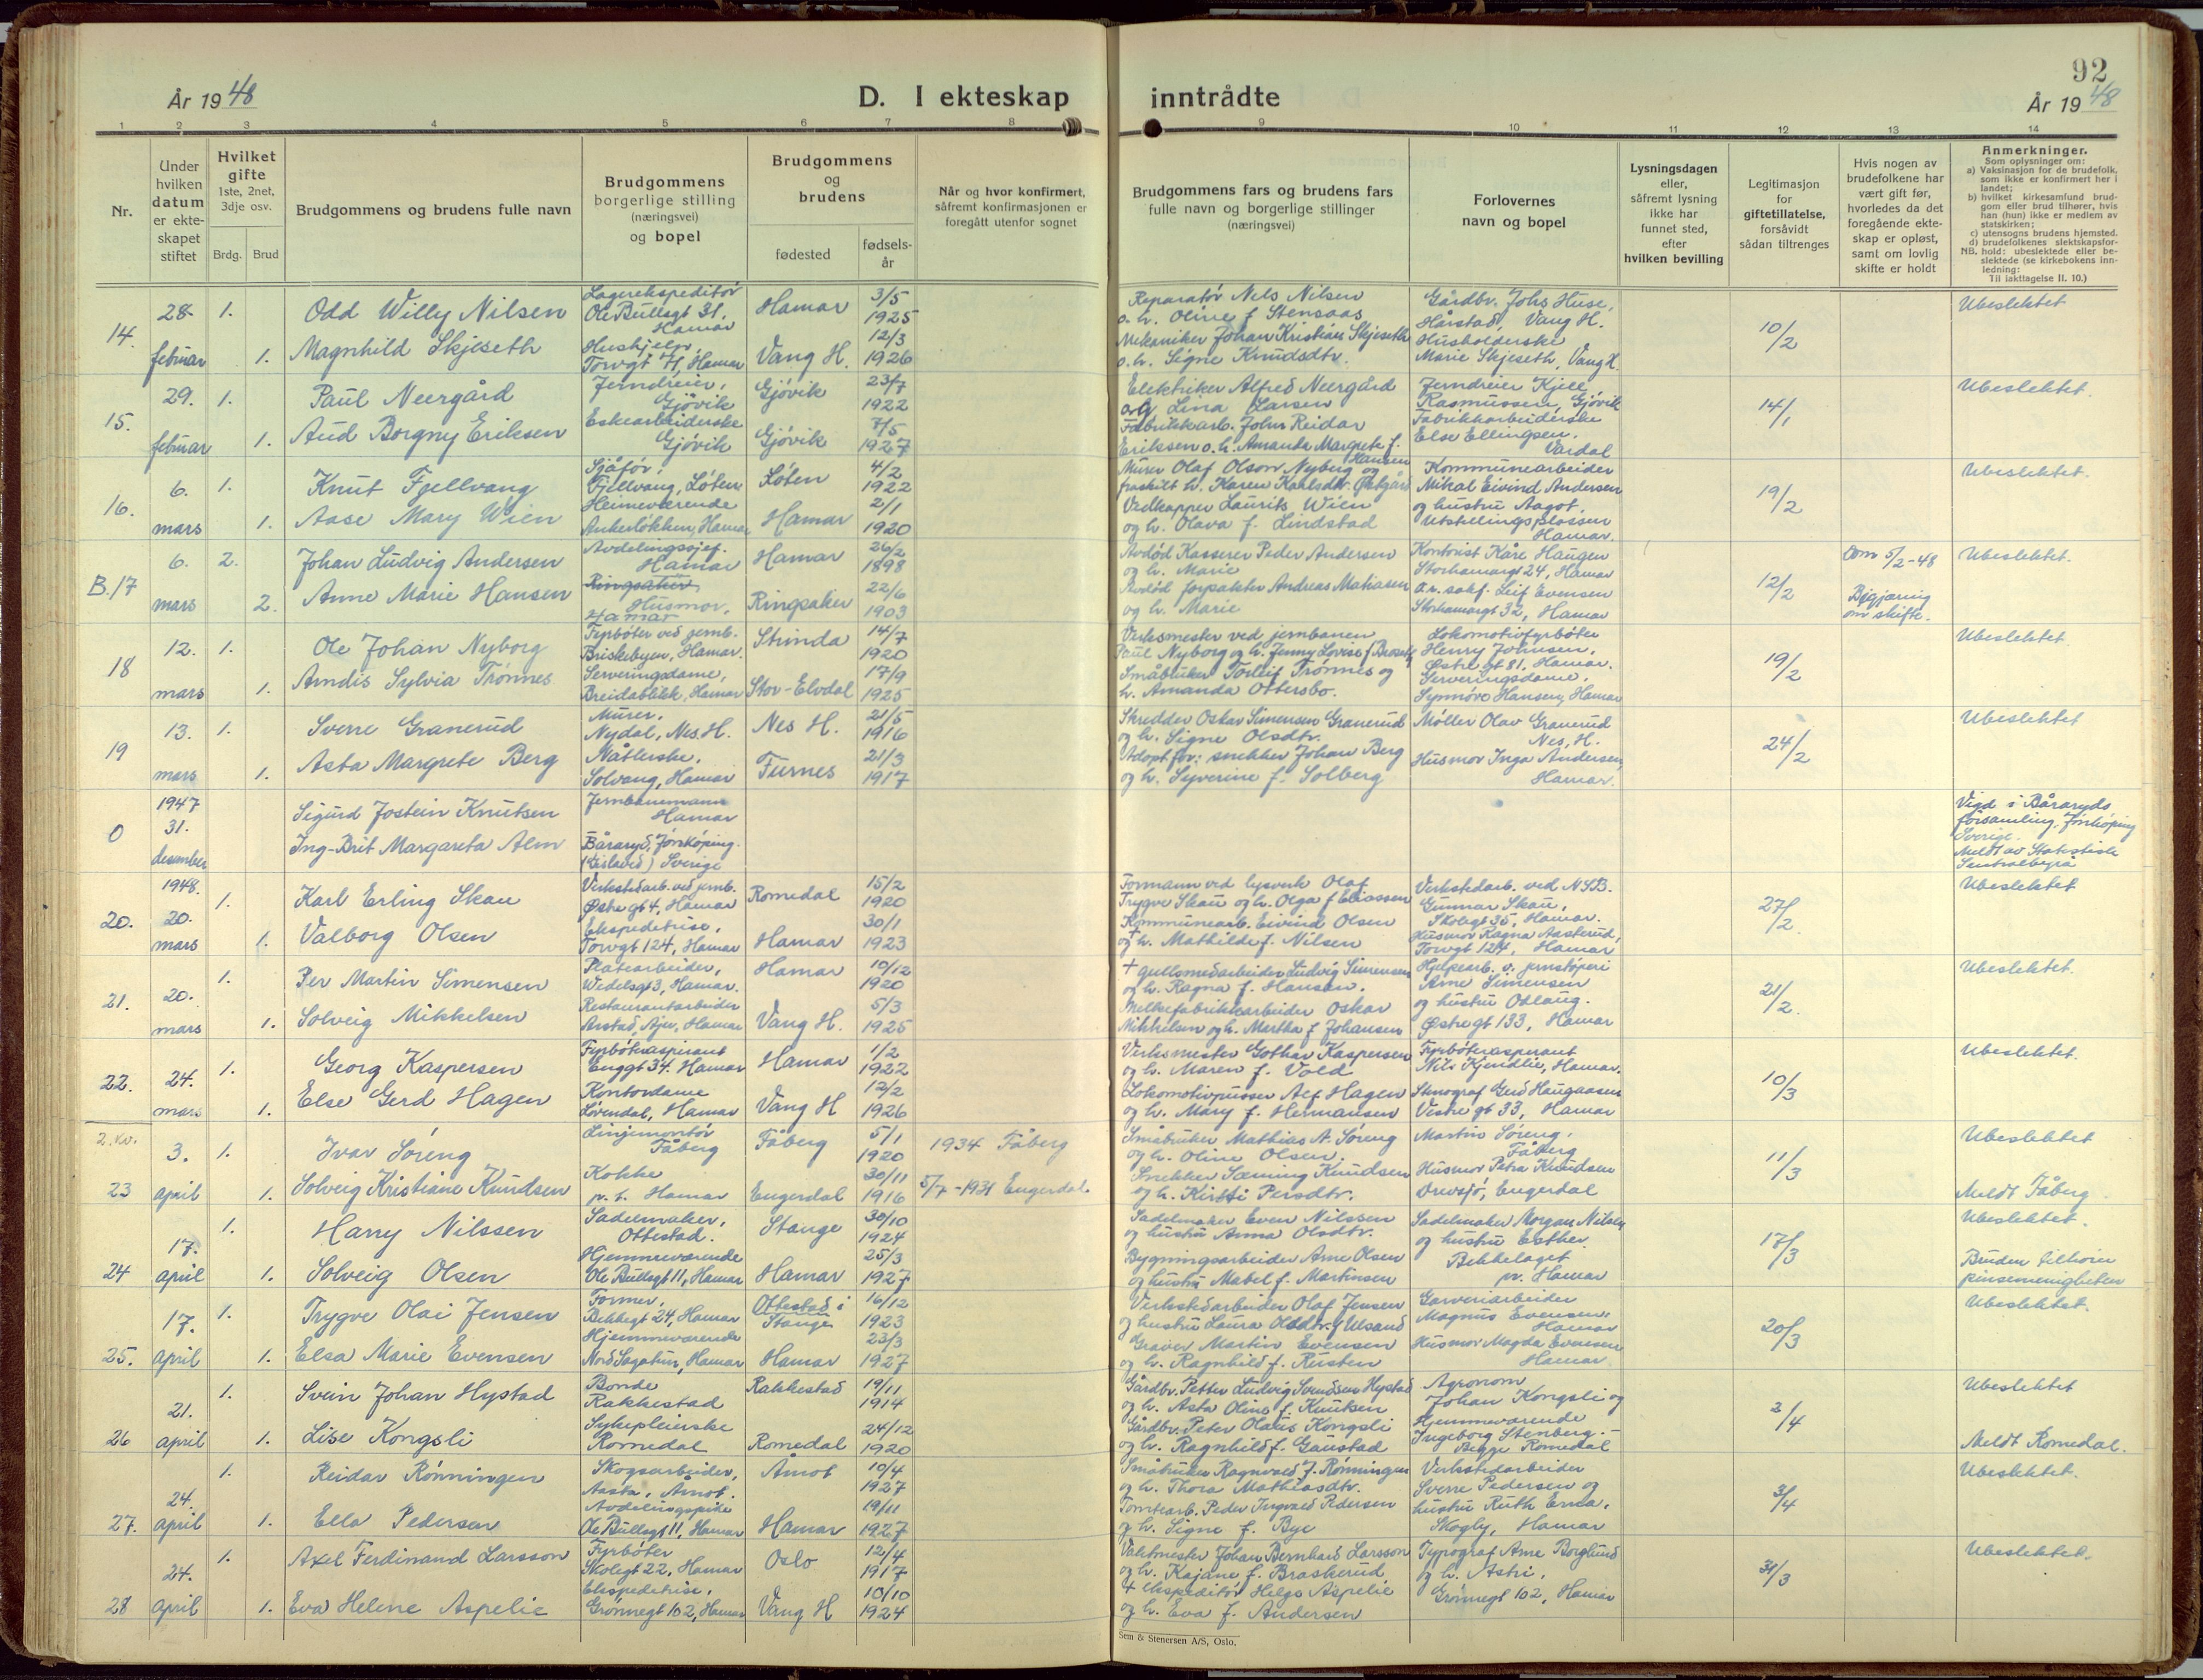 92
År 1948
D. I ekteskap inntrådte
År 1948
1 2 3 4 5 6 7 8 9 10 11 12 13 14
Nr.
Under hvilken datum er ekte-skapet stiftet
Hvilket gifte 1ste, 2net, 3dje osv.
Brdg. Brud
Brudgommens og brudens fulle navn
Brudgommens borgerlige stilling (næringsvei) og bopel
Brudgommens og brudens
fødested
fødsels-år
Når og hvor konfirmert, såfremt konfirmasjonen er foregått utenfor sognet
Brudgommens fars og brudens fars fulle navn og borgerlige stillinger (næringsvei)
Forlovernes navn og bopel
Lysningsdagen eller, såfremt lysning ikke har funnet sted, efter hvilken bevilling
Legitimasjon for giftetillatelse, forsåvidt sådan tiltrenges
Hvis nogen av brudefolkene har vært gift før, hvorledes da det foregående ekte-skap er opløst, samt om lovlig skifte er holdt
Anmerkninger.
Som oplysninger om:
a) Vaksinasjon for de brudefolk, som ikke er konfirmert her i landet;
b) hvilket kirkesamfund brud-gom eller brud tilhører, hvis han (hun) ikke er medlem av statskirken;
c) utensogns brudens hjemsted.
d) brudefolkenes slektskapsfor-hold: ubeslektede eller be-slektede (se kirkebokens inn-ledning:
NB. Til iakttagelse II. 10.)
14. 28. februar 1. Odd Willy Nilsen Lagerekspeditør Ole Bullsgt 31, Hamar Hamar 3/5 1925
Reparatør Nels Nilsen o. h. Oline f Stensaas Gårdbr. Johs Huse, Hårstad, Vang H. 10/2 Ubeslektet
1. Magnhild Skjeseth Hushjelp, Torvgt 71, Hamar Vang H. 12/3 1926
Mekaniker Johan Kristian Skjeseth o. h. Signe Knudsdtr. Husholderske Marie Skjeseth, Vang H.
15. 29. februar 1. Paul Neergård Jerndreier, Gjøvik Gjøvik 23/7 1922
Elektriker Alfred Neergård og Lina Larsen Jerndreier Kjell Rasmussen, Gjøvik 14/1 Ubeslektet.
1. Aud Borgny Eriksen Eskearbeiderske Gjøvik Gjøvik 7/5 1927
Fabrikkarb. John Reidar Eriksen o. h. Amanda Margrete f. Hansen Fabrikkarbeiderske Else Ellingsen, Vardal
16. 6. mars 1. Knut Fjellvang Sjåfør, Fjellvang, Løten Løten 4/2 1922
Murer Olaf Olson Nyberg og fraskilt h. Karen Karlsdtr. Østgård Kommunearbeider Mikal Eivind Andersen 19/2 Ubeslektet.
1. Aase Mary Wien Heimeværende Ankerløkken, Hamar Hamar 2/1 1920
Vedkapper Laurits Wien og h. Olava f. Lindstad og hustru Aagot, Utstillingsplassen Hamar.
B. 17 6. mars 2. Johan Ludvig Andersen Avdelingssjef. Hamar Hamar 26/2 1898
Avdød Kasserer Peder Andersen og h. Marie Kontorist Kåre Haugen Storhamargt 24, Hamar 12/2 Dom 5/2-48 Ubeslektet.
2. Anne Marie Hansen Ringsaker Husmor, Hamar Ringsaker 22/6 1903
Avdød forpakter Andreas Matiasen og h. Marie O.r. sakf. Leif Evensen Storhamargt 32, Hamar Begjæring om skifte.
18 12. mars 1. Ole Johan Nyborg Fyrbøter ved jernb. Briskebyen, Hamar. Strinda 14/7 1920
Verksmester ved jernbanen Paul Nyborg og h. Jenny Lovise f Lokomotivfyrbøter Henry Johnsen, Østre gt 81, Hamar. 19/2 Ubeslektet
1. Arndis Sylvia Trønnes Serveringsdame, Breidablikk, Hamar Stor-Elvdal 17/9 1925
Småbruker Torleif Trønnes og h. Amanda Ottersbo. Serveringsdame, Synnøve Hansen, Hamar
19 13. mars 1. Sverre Granerud Murer, Nydal, Nes. H. Nes H. 21/5 1916
Skredder Oskar Simensen Granerud og h. Signe Olsdtr. Møller Olav Granerud Nes, H. 24/2 Ubeslektet
1. Asta Margrete Berg Nåtlerske, Solvang, Hamar Furnes 21/3 1917
Adopt. for: snekker Johan Berg og h. Syverine f. Solberg Husmor Inga Andersen, Hamar.
0 1947 31. desember Sigurd Jostein Knutsen Jernbanemann Hamar
Ing-Brit Margareta Alm Båraryd, Jønkøping. (Gislaved) Sverige
Vigd i Båraryds forsamling, Jönköping Sverige. Meldt av Statistisk Sentralbyrå
20. 1948. 20. mars 1. Karl Erling Skau Verkstedarb. ved jernb. Østre gt 4, Hamar Romedal 15/2 1920
Formann ved lysverk Olaf Trygve Skau og h. Olga f Eliassen Verkstedarb. ved NSB. Gunnar Skau, Skolegt 35, Hamar. 27/2 Ubeslektet
1. Valborg Olsen Ekspeditrise, Torvgt 124, Hamar Hamar 30/1 1923
Kommunearb. Eivind Olsen og h. Mathilde f. Nilsen Husmor Ragna Aasterud, Torvgt 124, Hamar
21. 20. mars 1. Per Martin Simensen Platearbeider, Wedelsgt 3, Hamar. Hamar 10/12 1920
+ gullsmedarbeider Ludvig Simensen og h. Ragna f. Hansen. Hjelpearb. v. jernstøperi Arne Simensen 21/2 Ubeslektet.
1. Solveig Mikkelsen Restaurantarbeider Arstad, Ajer, Hamar Vang H. 5/3 1925
Melkefabrikkarbeider Oskar Mikkelsen og h. Martha f Johansen og hustru Oslaug. Østregt 133, Hamar
22. 24. mars 1. Georg Kaspersen Fyrbøteraspirant Enggt 34. Hamar Hamar 1/2 1922
Verksmester Gothar Kaspersen og h. Maren f. Vold Fyrbøteraspirant Nils Kjendlie, Hamar. 10/3 Ubeslektet.
1. Else Gerd Hagen Kontordame Løvendal, Hamar Vang H 12/2 1926
Lokomotivpusser Alf Hagen og h. Mary f. Hermansen Stenograf Gerd Haugaasen Vestre gt 33, Hamar
2. kv.
23 3. april 1. Ivar Søreng Linjemontør Fåberg Fåberg 5/1 1920 1934 Fåberg
Småbruker Mathias A. Søreng og h. Oline Olsen. Martin Søreng, Fåberg 11/3 Ubeslektet
1. Solveig Kristiane Knudsen Kokke p. t. Hamar Engerdal 30/11 1916 5/7-1931 Engerdal
Snekker Sæming Knudsen og h. Kirsti Persdtr. Husmor Petra Knudsen Drevsjø, Engerdal Meldt Fåberg
24 17. april 1. Harry Nilssen Sadelmaker, Ottestad. Stange 30/10 1924
Sadelmaker Even Nilssen og hustru Anna Olsdtr. Sadelmaker Morgan Nilsen og hustru Esther 17/3 Ubeslektet.
1. Solveig Olsen Hjemmeværende Ole Bullsgt 11, Hamar Hamar 25/3 1927
Bygningsarbeider Arne Olsen og hustru Mabel f. Martinsen Bekkelaget pr. Hamar Bruden tilhører pinsemenigheten
25. 17. april 1. Trygve Olai Jensen Former, Bekkegt 24, Hamar Ottestad i Stange 16/12 1923
Verkstedarbeider Olaf Jensen og hustru Laura Olsdtr. f Ulsand Garveriarbeider Magnus Evensen, Hamar 20/3 Ubeslektet.
1. Elsa Marie Evensen Hjemmeværende Nord Sagatun, Hamar Hamar 23/3 1927
Graver Martin Evensen og h. Ragnhild f. Rusten Husmor Magda Evensen Hamar.
26 21. april 1. Svein Johan Hystad Bonde Rakkestad Rakkestad 19/11 1914
Gårdbr. Petter Ludvig Svendsen Hystad og h. Asta Oline f. Knutsen Agronom Johan Kongsli og 2/4 Ubeslektet
1. Lise Kongsli Sykepleierske Romedal Romedal 24/12 1920
Gårdbr. Peter Olaus Kongsli og h. Ragnhild f. Gaustad Hjemmeværende Ingeborg Stenberg. - Begge Romedal Meldt Romedal.
27. 24. april 1. Reidar Rønningen Skogsarbeider, Aasta, Åmot. Åmot 10/4 1927
Småbruker Ragnvald J. Rønningen og h. Thora Mathiasdtr. Verkstedarbeider Sverre Pedersen og 3/4 Ubeslektet.
1. Ella Pedersen Avdelingspike Ole Bullsgt 11, Hamar Hamar 19/11 1927
Tomtearb. Peder Ingvald Pedersen og h. Signe f. Bye hustru Ruth Erna, Skogly, Hamar
28 24. april 1. Axel Ferdinand Larsson Fyrbøter Skolegt 22, Hamar Oslo 12/4 1917
Vaktmester Johan Bernhard Larsson og h. Kajane f. Braskerud Typograf Arne Borglund og h. Astri, 31/3 Ubeslektet.
1. Eva Helene Aspelie Ekspeditrise, Grønnegt 102, Hamar Vang H 10/10 1924
+ Ekspeditør Helge Aspelie og h. Eva f. Andersen Grønnegt 102, Hamar
Sem & Stenersen A/S, Oslo.